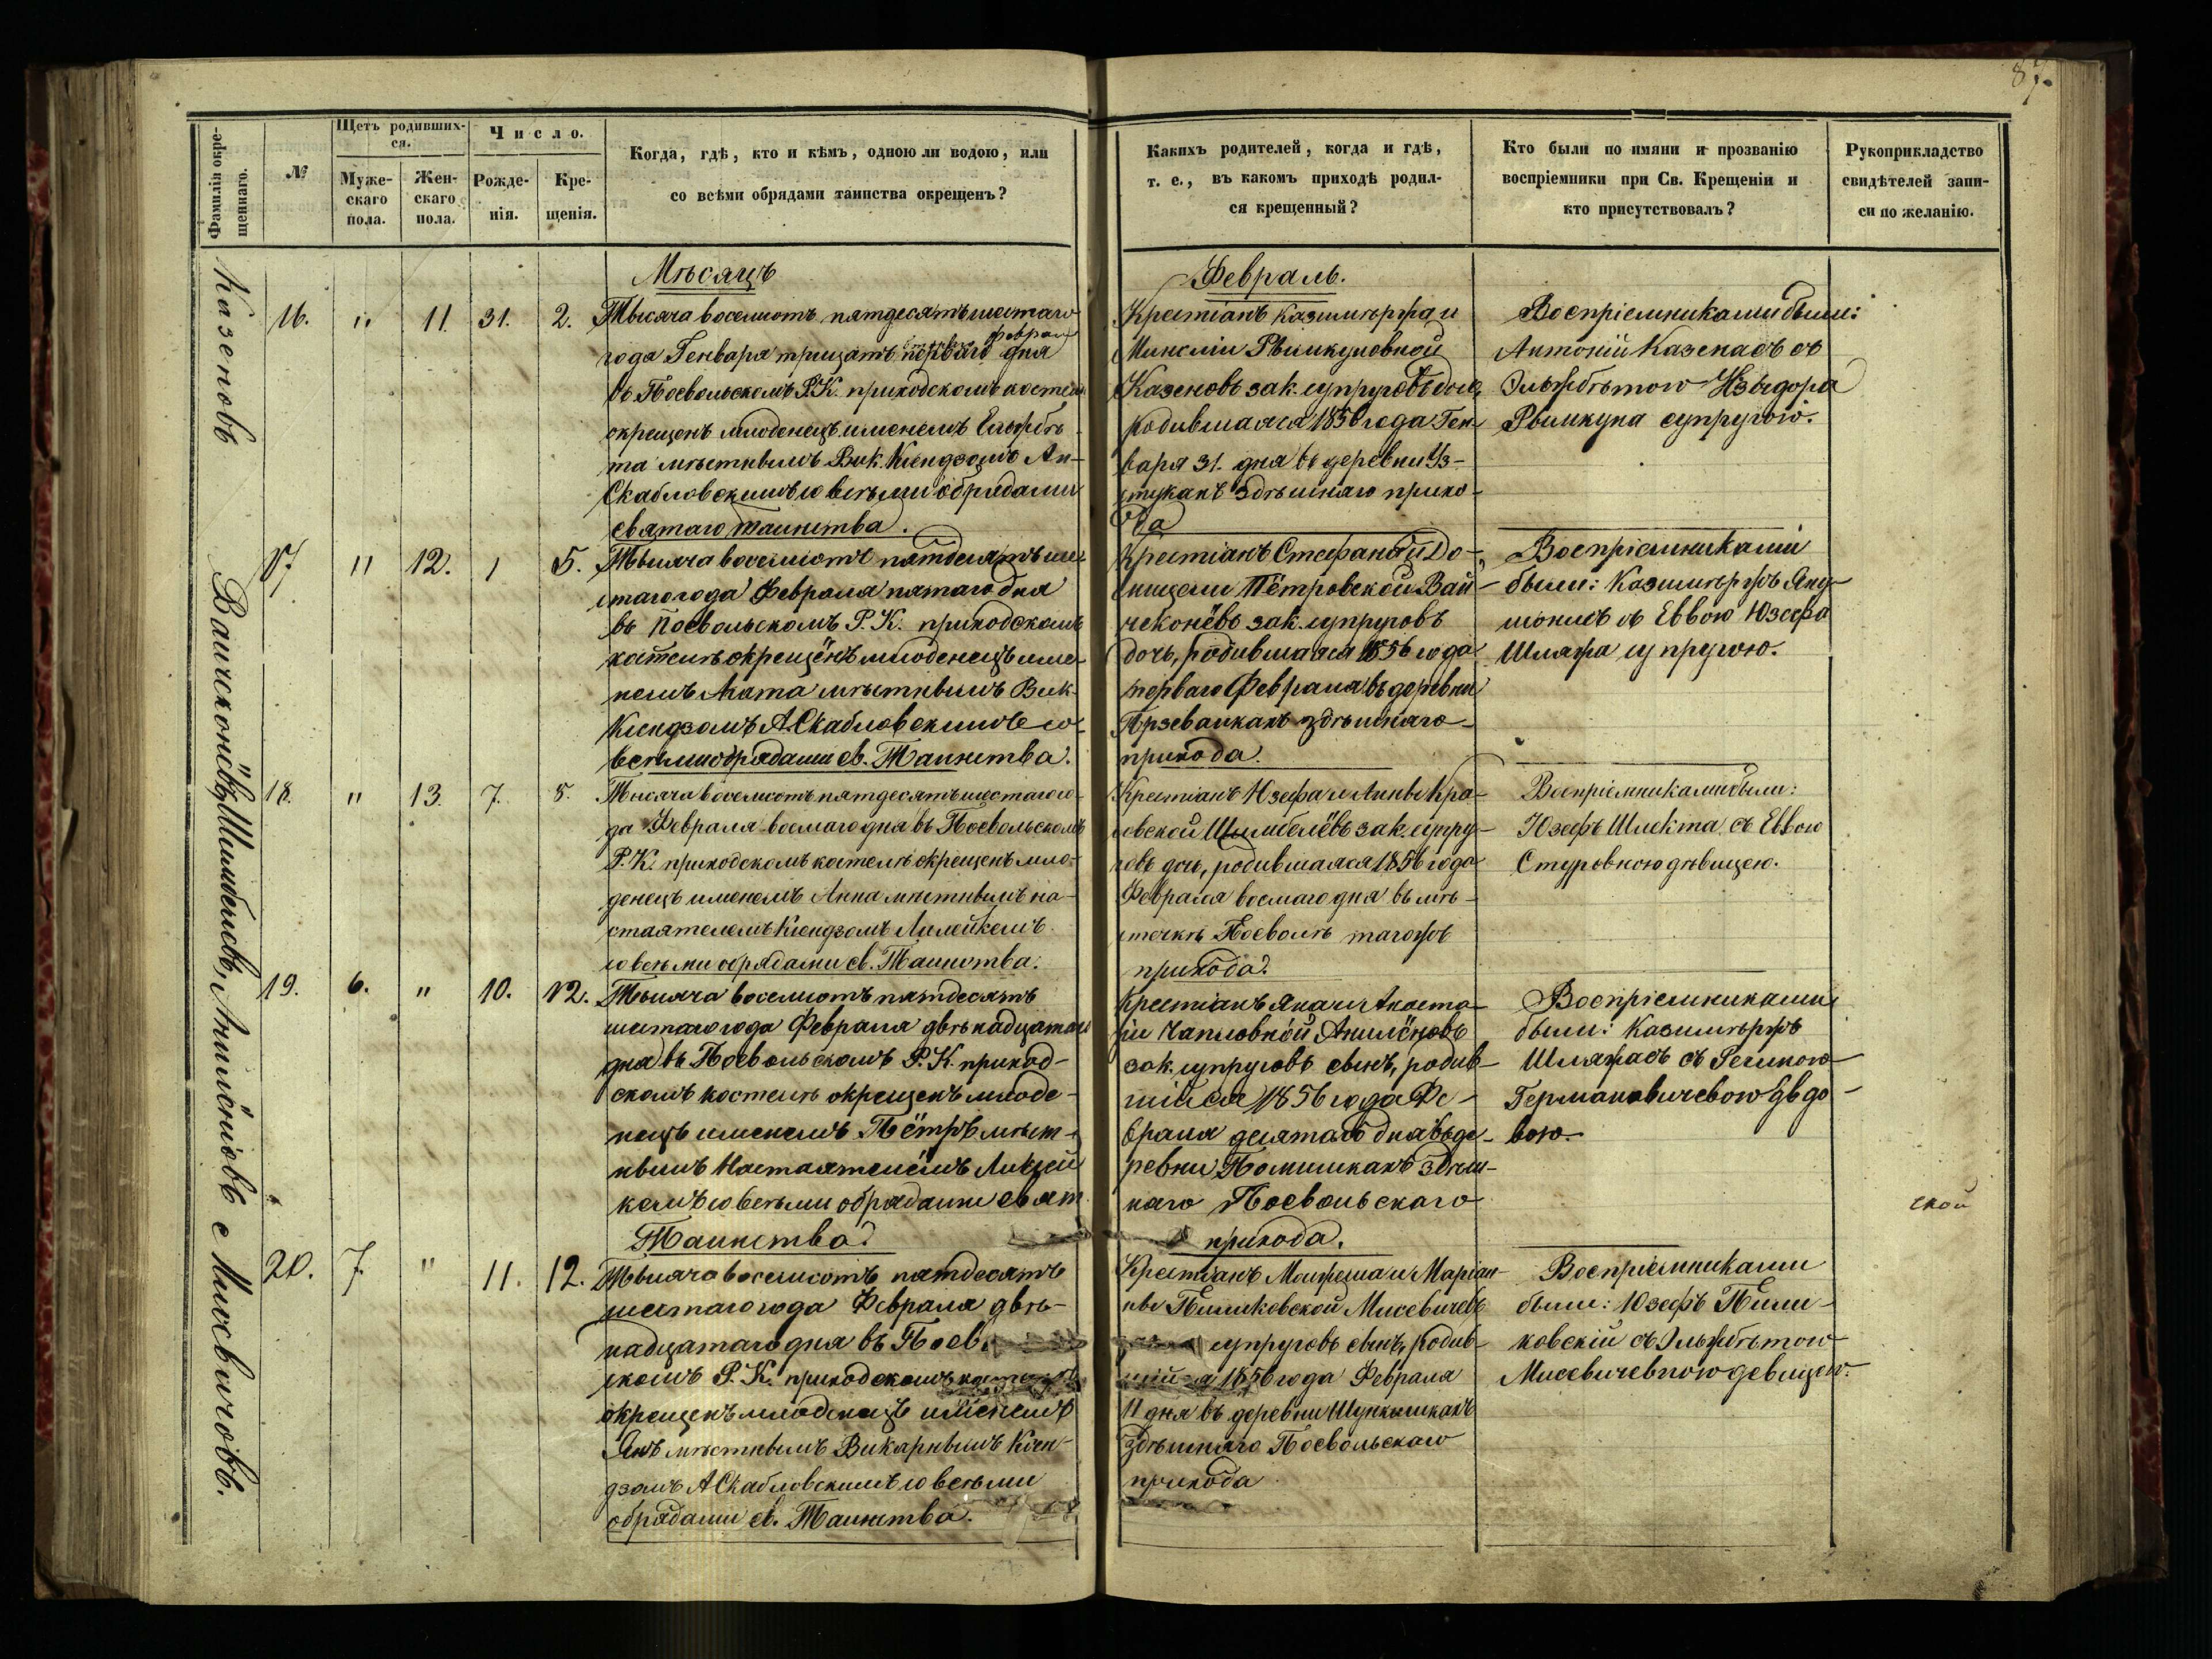 87.
Фамилія окре-
щеннаго.
№
Щетъ родивших-
ся.
Муже-
скаго
пола.
Жен-
скаго
пола.
Число.
Рожде-
нія.
Кре-
щенія.
Когда, гдѣ, кто и кѣмъ, одною ли водою, или
со всѣми обрядами таинства окрещенъ?
Какихъ родителей, когда и гдѣ,
т. е., въ какомъ приходѣ родил-
ся крещенный?
Кто были по имяни и прозванію
воспріемники при Св. Крещеніи и
кто присутствовалъ?
Рукоприкладство
свидѣтелей запи-
си по желанію.
Мѣсяцъ
Февраль.
Казеновъ
16. " 11. 31. 2.
Тысяча восемсотъ пятдесятъ шестаго
года Генваря трицать перваго дня
февраля
въ Поевольскомъ Р.К. приходскомъ костелѣ
окрещенъ младенецъ именемъ Ельжбѣ
та мѣстнымъ Вик. Ксендзомъ Ан-
Скабловскимъ со всѣми обрядами
святаго таинства.
Крестіанъ Казимѣржа и
Рымкуновной
Казеновъ зак. супруговъ дочь,
родившаяся 1856 года Ген-
варя 31. дня въ деревни Уз-
стукахъ здѣшняго прихо-
да
Воспріемниками были:
Антоній Казенасъ съ
Эльжбѣтою Изыдора
Рымкуна супругою.
Вайчеконёвъ
17. " 12. 1 5.
Тысяча восемсотъ пятдесятъ ше
стаго года Февраля пятаго дня
въ Поевольскомъ Р.К. приходскомъ
костелѣ окрещёнъ младенецъ име-
немъ Агата мѣстнымъ Вик.
Ксендзомъ А. Скабловскимъ со
всѣми обрядами св. Таинства.
Крестіанъ Стефана и До-
Пётровской Вай-
чеконёвъ зак. супруговъ
дочь, родившаяся 1856 года
перваго Февраля въ деревни
Прзеваткахъ здѣшняго
прихода.
Воспріемниками
были: Казимѣржъ Яну-
шонисъ съ Еввою Юзефа
Шляжа супругою.
Шимбелевъ,
18. " 13. 7. 8.
Тысяча восемсотъ пятдесятъ шестаго го-
да Февраля восмаго дня въ Поевольскомъ
Р.К. приходскомъ костелѣ окрещенъ мла-
денецъ именемъ Анна мѣстнымъ на-
стаятелемъ Ксендзомъ Лилейкемъ
со всѣми обрядами св. Таинства.
Крестіанъ Юзефа и Анны Кра-
совской Шимбелёвъ зак. супру-
говъ дочь, родившаяся 1856 года
Февраля восмаго дня въ мѣ-
стечкѣ Поеволѣ тагожъ
прихода.
Воспріемниками были:
Юзефъ Шлекта съ Еввою
Стуровною дѣвицею.
Анилёновъ
19. 6. " 10. 12.
Тысяча восемсотъ пятдесятъ
шестаго года Февраля двѣнадцатаго
дня въ Поевольскомъ Р.К. приход-
скомъ костелѣ окрещенъ младе-
нецъ именемъ Пётръ мѣст-
нымъ Настаятелёмъ Лилей
кемъ со всѣми обрядами свят.
Таинства.
Крестіанъ Яна и Анаста-
зіи Чапловной Анилёновъ
зак. супруговъ сынъ, родив-
шійся 1856 года Фе-
враля десятаго дня въ де-
ревни Помишкахъ здѣш-
наго Поевольскаго
прихода.
Воспріемниками
были: Казимѣржъ
Шляжасъ съ Региною
Германовичевою вдо-
вою.
ской
и Мисевичовъ.
20. 7. " 11. 12.
Тысяча восемсотъ пятдесятъ
шестаго года Февраля двѣ-
надцатаго дня въ Поев
скомъ Р.К. приходскомъ
окрещенъ младенецъ именемъ
Янъ мѣстнымъ Викарнымъ Ксен-
дзомъ А Скабловскимъ со всѣми
обрядами св. Таинства.
Крестіанъ Маѵжеша и Маріан-
ны Пилиховской Мисевичовъ
супруговъ сынъ, родив-
шійся 1856 года Февраля
11 дня въ деревни Шункишкахъ
здѣшняго Поевольскаго
прихода
Воспріемниками
были: Юзефъ Пили-
ховскій съ Эльжбѣтою
Мисевичевною девицею.